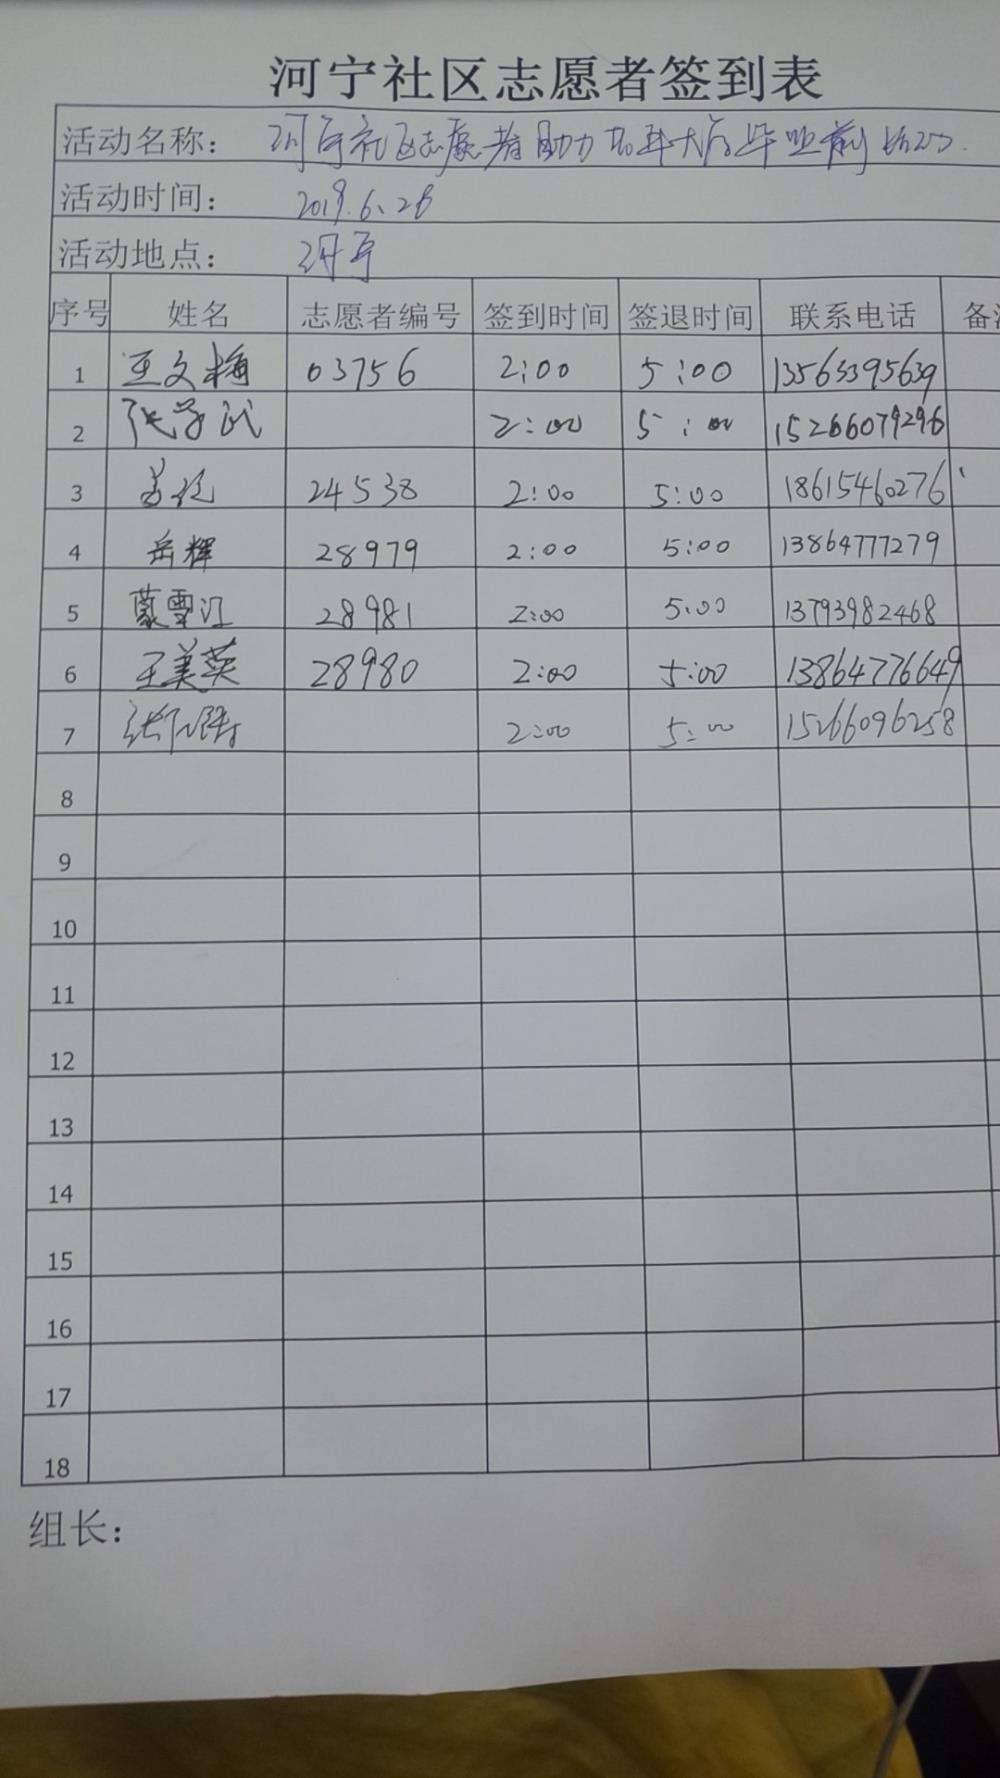 河宁社区志愿者签到表
活动名称： 河宁社区志愿者助力 大 毕业前 活动.
活动时间： 2019.6.28
活动地点： 河宁
序号 姓名 志愿者编号 签到时间 签退时间 联系电话 备注
1 王文梅 03756 2:00 5:00 13563395639
2 张 武 2:00 5:00 15266079296
3 24538 2:00 5:00 18615460276
4 岳辉 28979 2:00 5:00 13864777279
5 蒙雪江 28981 2:00 5:00 13793982468
6 王美英 28980 2:00 5:00 13864776649
7 2:00 5:00 15266096258
8
9
10
11
12
13
14
15
16
17
18
组长：